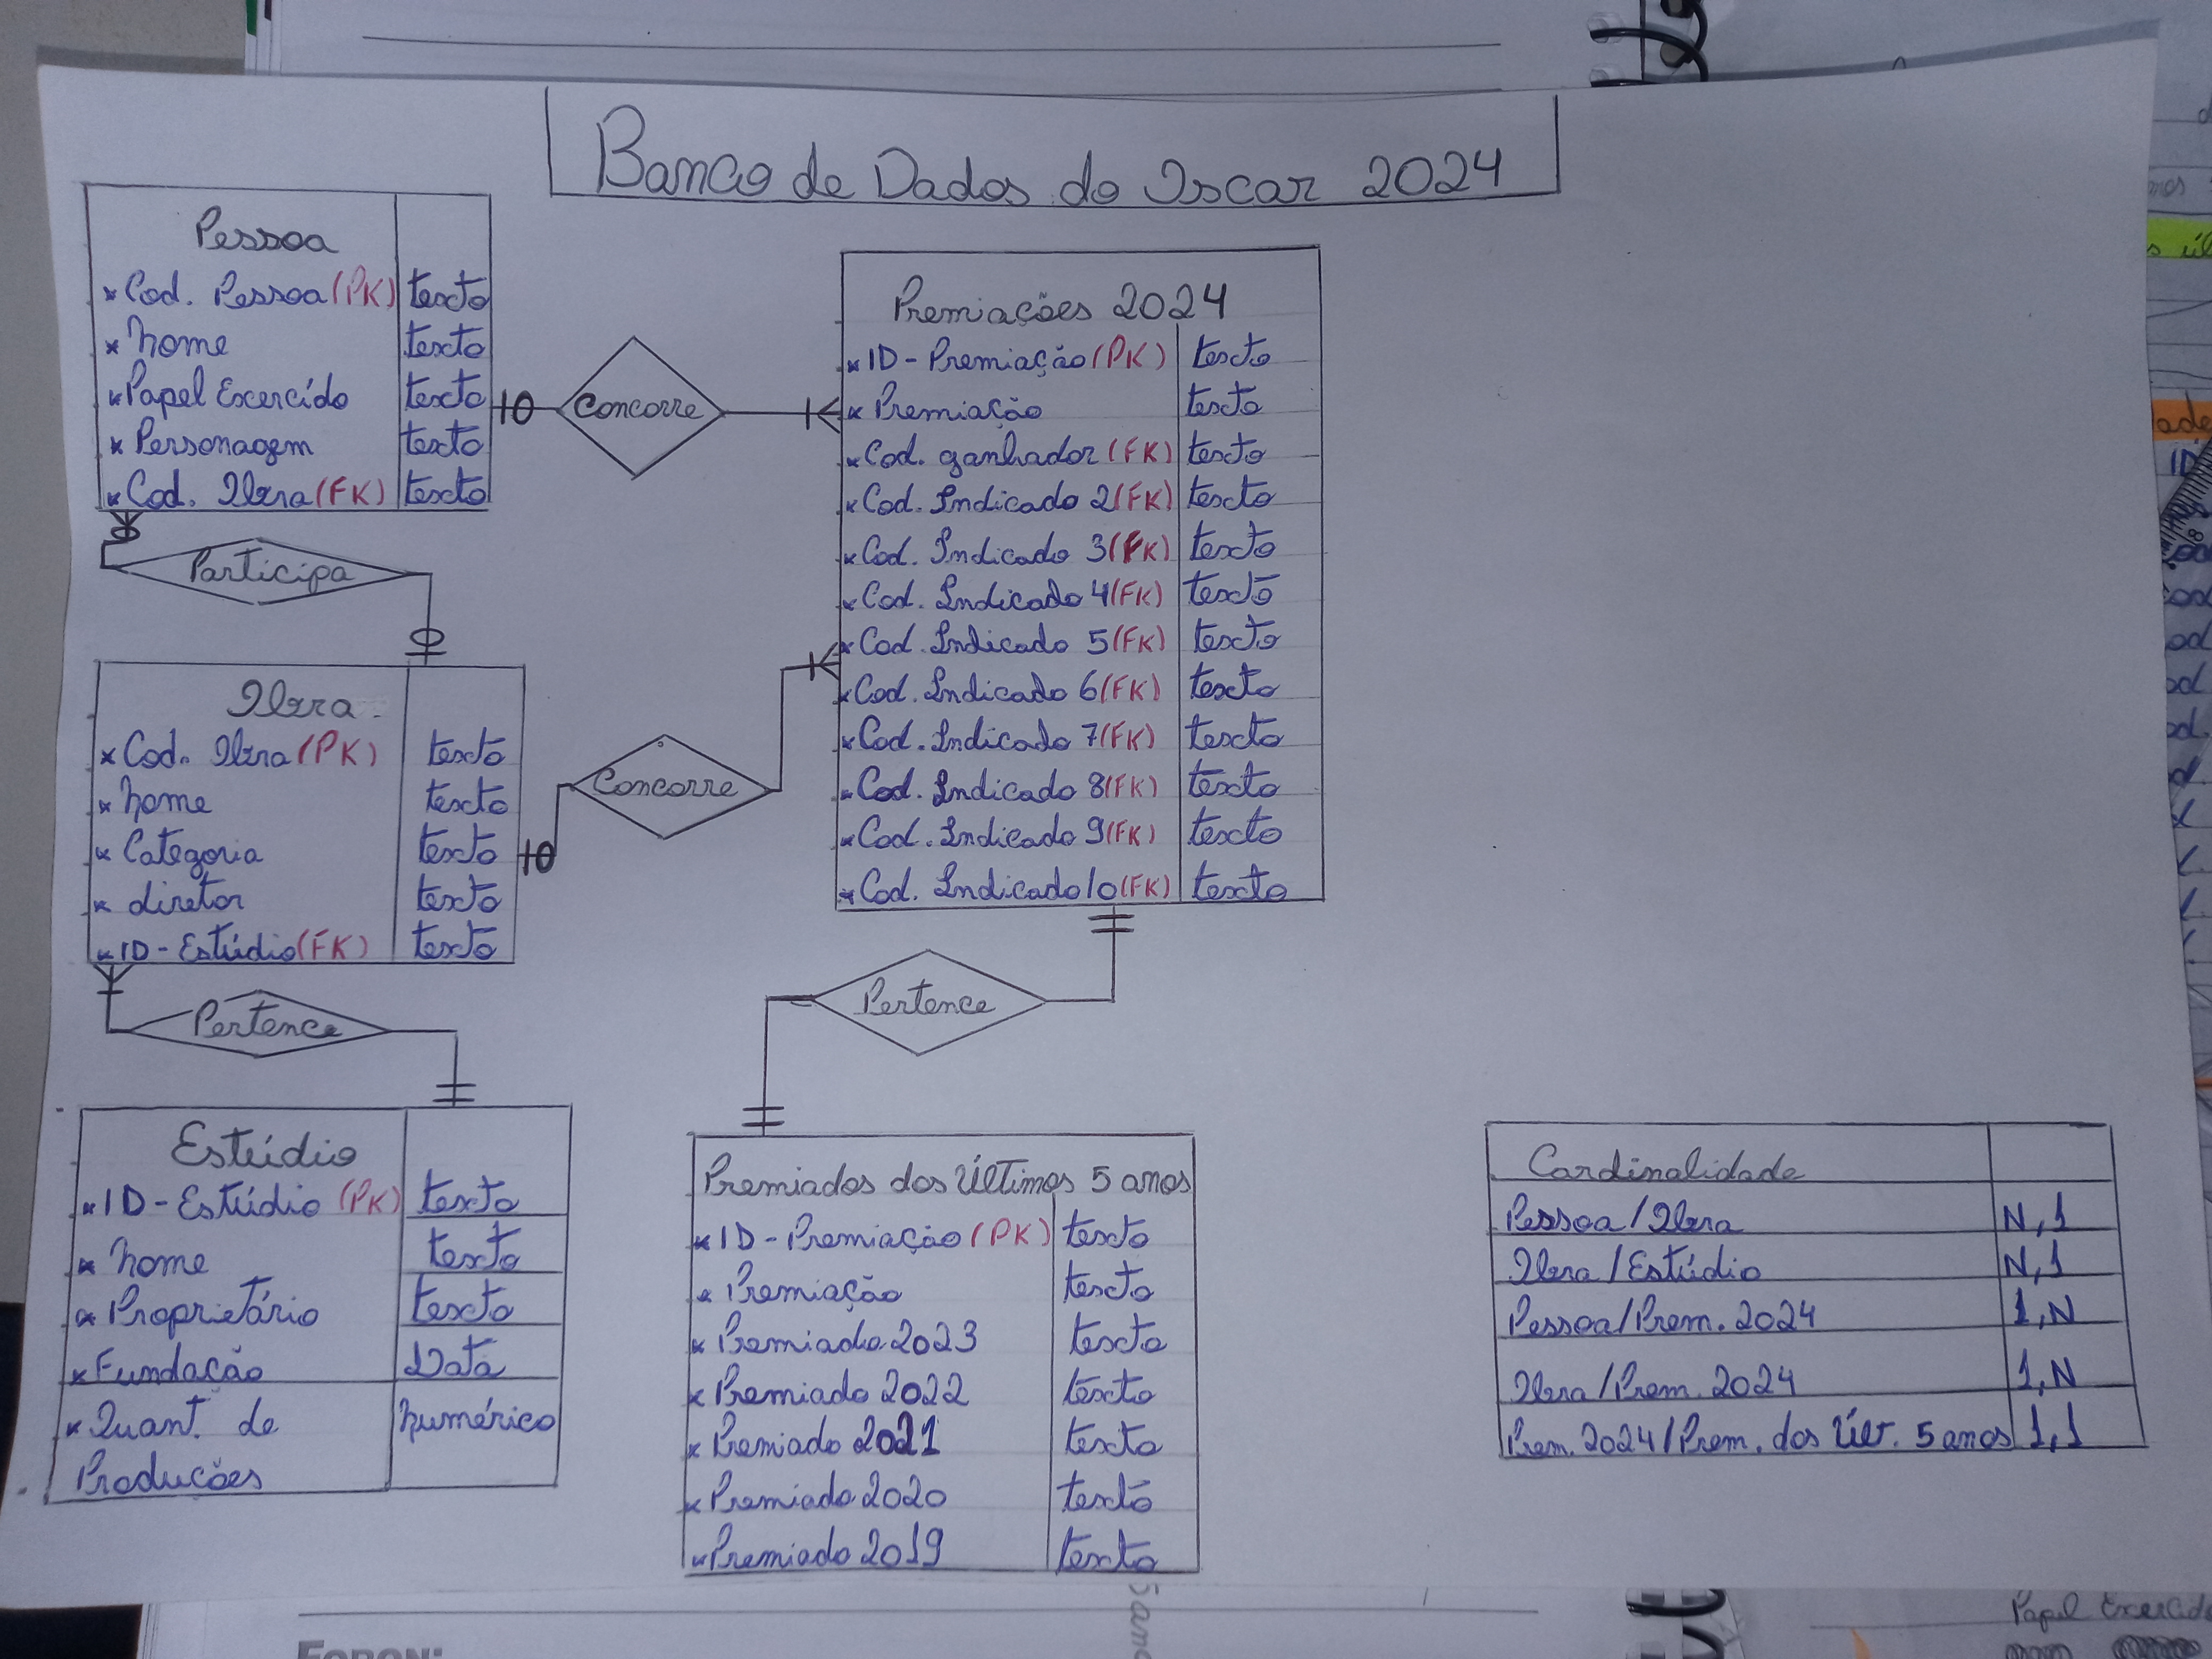 Banco de Dados do Oscar 2024
Pessoa
* Cod. Pessoa (PK) texto
* Nome texto
* Papel Exercido texto
* Personagem texto
* Cod. Obra (FK) texto
Concorre
Premiações 2024
* ID - Premiação (PK) texto
* Premiação texto
* Cod. ganhador (FK) texto
* Cod. Indicado 2 (FK) texto
* Cod. Indicado 3 (FK) texto
* Cod. Indicado 4 (FK) texto
* Cod. Indicado 5 (FK) texto
* Cod. Indicado 6 (FK) texto
* Cod. Indicado 7 (FK) texto
* Cod. Indicado 8 (FK) texto
* Cod. Indicado 9 (FK) texto
* Cod. Indicado 10 (FK) texto
Participa
Obra
* Cod. Obra (PK) texto
* Nome texto
* Categoria texto
* diretor texto
* ID - Estúdio (FK) texto
Concorre
Pertence
Pertence
Estúdio
* ID - Estúdio (PK) texto
* Nome texto
* Proprietário texto
* Fundação Data
* Quant. de Numérico
Produções
Premiados dos Últimos 5 anos
* ID - Premiação (PK) texto
* Premiação texto
* Premiado 2023 texto
* Premiado 2022 texto
* Premiado 2021 texto
* Premiado 2020 texto
* Premiado 2019 texto
Cardinalidade
Pessoa / Obra N,1
Obra / Estúdio N,1
Pessoa / Prem. 2024 1,N
Obra / Prem. 2024 1,N
Prem. 2024 / Prem. dos Últ. 5 anos 1,1
Papel Exercido